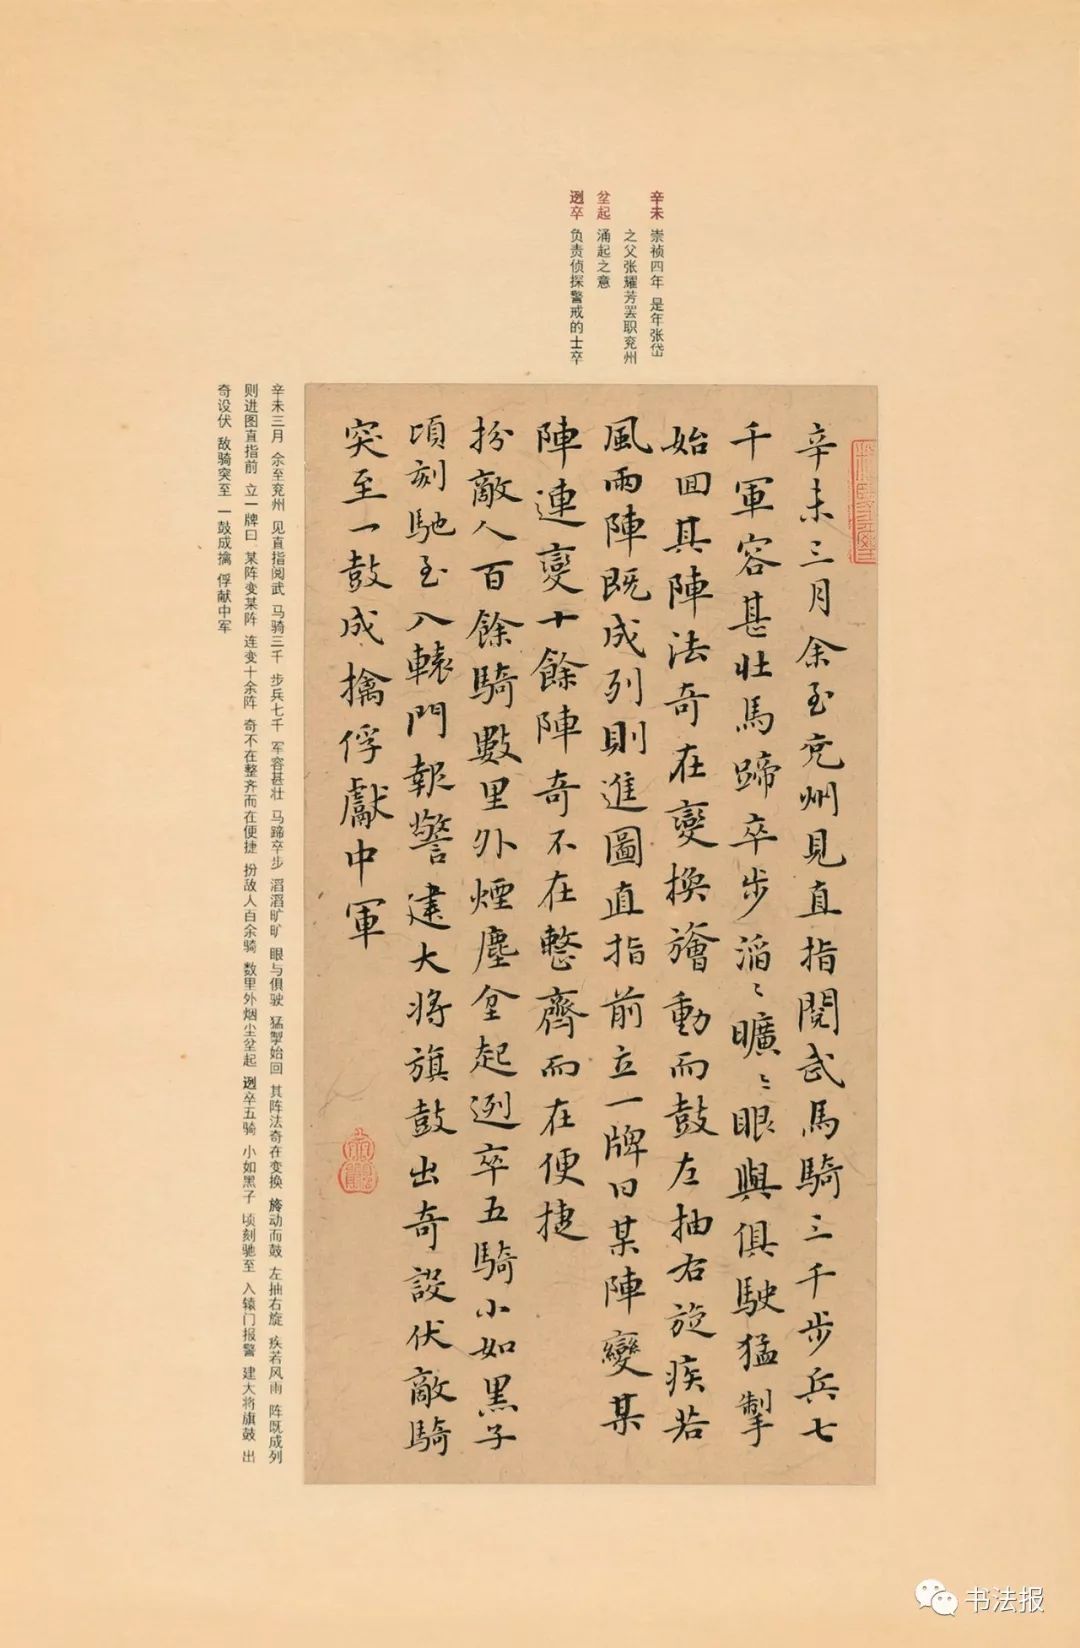 辛未 崇祯四年 是年张岱
之父张耀芳罢职兖州
坌起 涌起之意
迾卒 负责侦探警戒的士卒
辛未三月余至兗州見直指閱武馬騎三千步兵七
千軍容甚壯馬蹄卒步滔〻曠〻眼與俱駛猛掣
始回其陣法奇在變換旝動而鼓左抽右旋疾若
風雨陣既成列則進圖直指前立一牌曰某陣變某
陣連變十餘陣奇不在整齊而在便捷
扮敵人百餘騎數里外煙塵坌起迾卒五騎小如黑子
頃刻馳至入轅門報警建大將旗鼓出奇設伏敵騎
突至一鼓成擒俘獻中軍
辛未三月 余至兖州 见直指阅武 马骑三千 步兵七千 军容甚壮 马蹄卒步 滔滔旷旷 眼与俱驶 猛掣始回 其阵法奇在变换 旝动而鼓 左抽右旋 疾若风雨 阵既成列
则进图直指前 立一牌曰 某阵变某阵 连变十余阵 奇不在整齐而在便捷 扮敌人百余骑 数里外烟尘坌起 迾卒五骑 小如黑子 顷刻驰至 入辕门报警 建大将旗鼓 出
奇设伏 敌骑突至 一鼓成擒 俘献中军
书法报